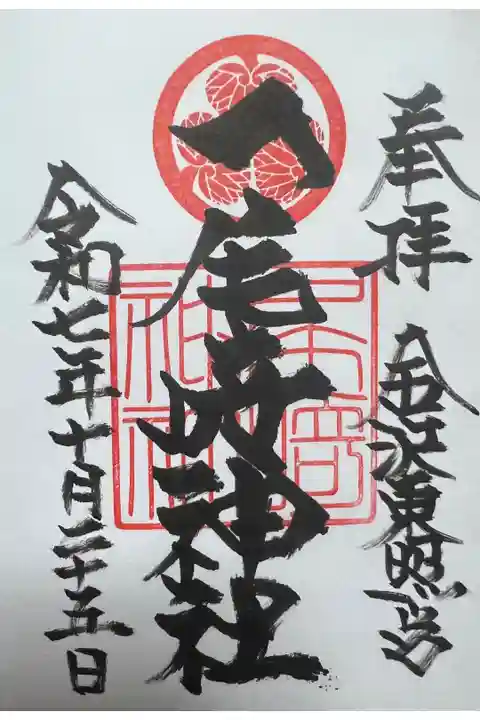 奉拝
金沢東照宮
尾崎神社
尾崎
神社
令和七年十月二十五日